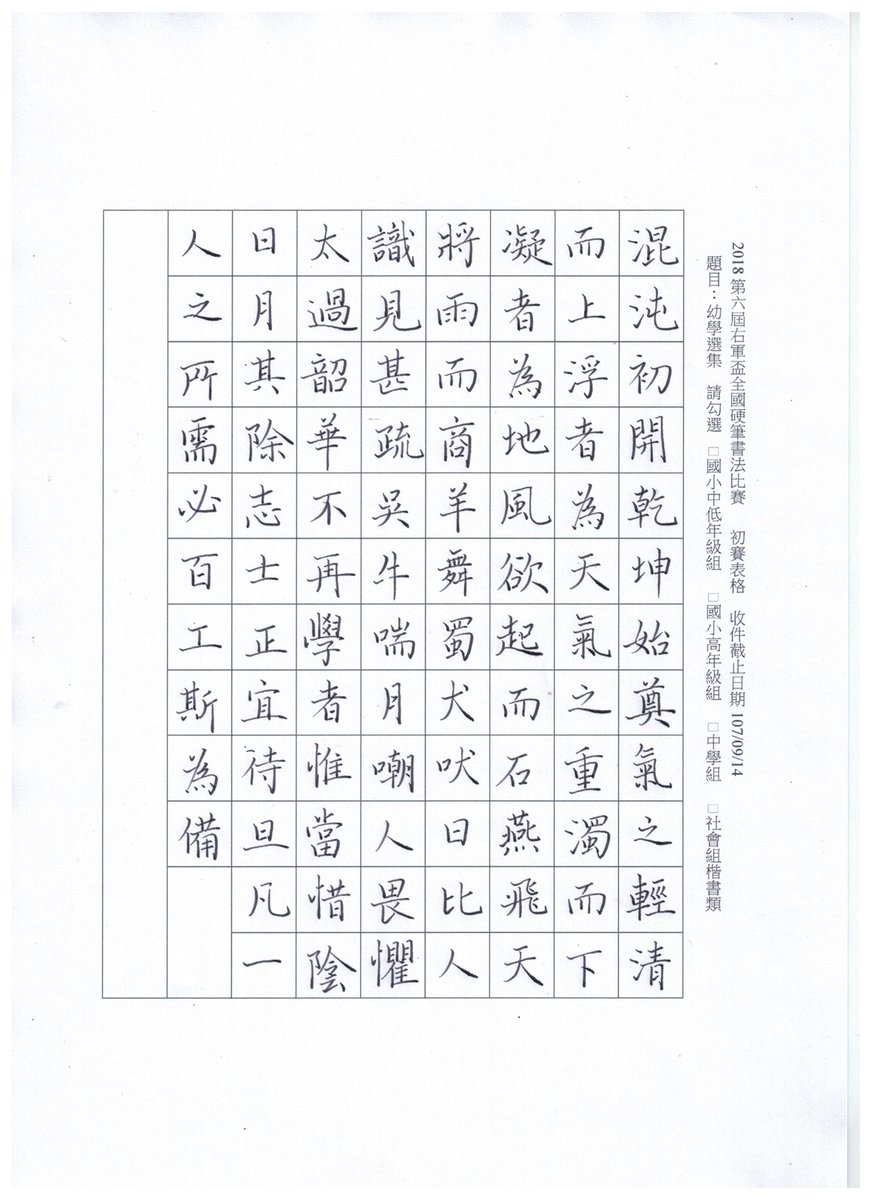 2018 第六屆右軍盃全國硬筆書法比賽 初賽表格 收件截止日期 107/09/14
題目：幼學選集 請勾選 □國小中低年級組 □國小高年級組 □中學組 □社會組楷書類
混沌初開乾坤始奠氣之輕清
而上浮者為天氣之重濁而下
凝者為地風欲起而石燕飛天
將雨而商羊舞蜀犬吠日比人
識見甚疏吳牛喘月嘲人畏懼
太過韶華不再學者惟當惜陰
日月其除志士正宜待旦凡一
人之所需必百工斯為備